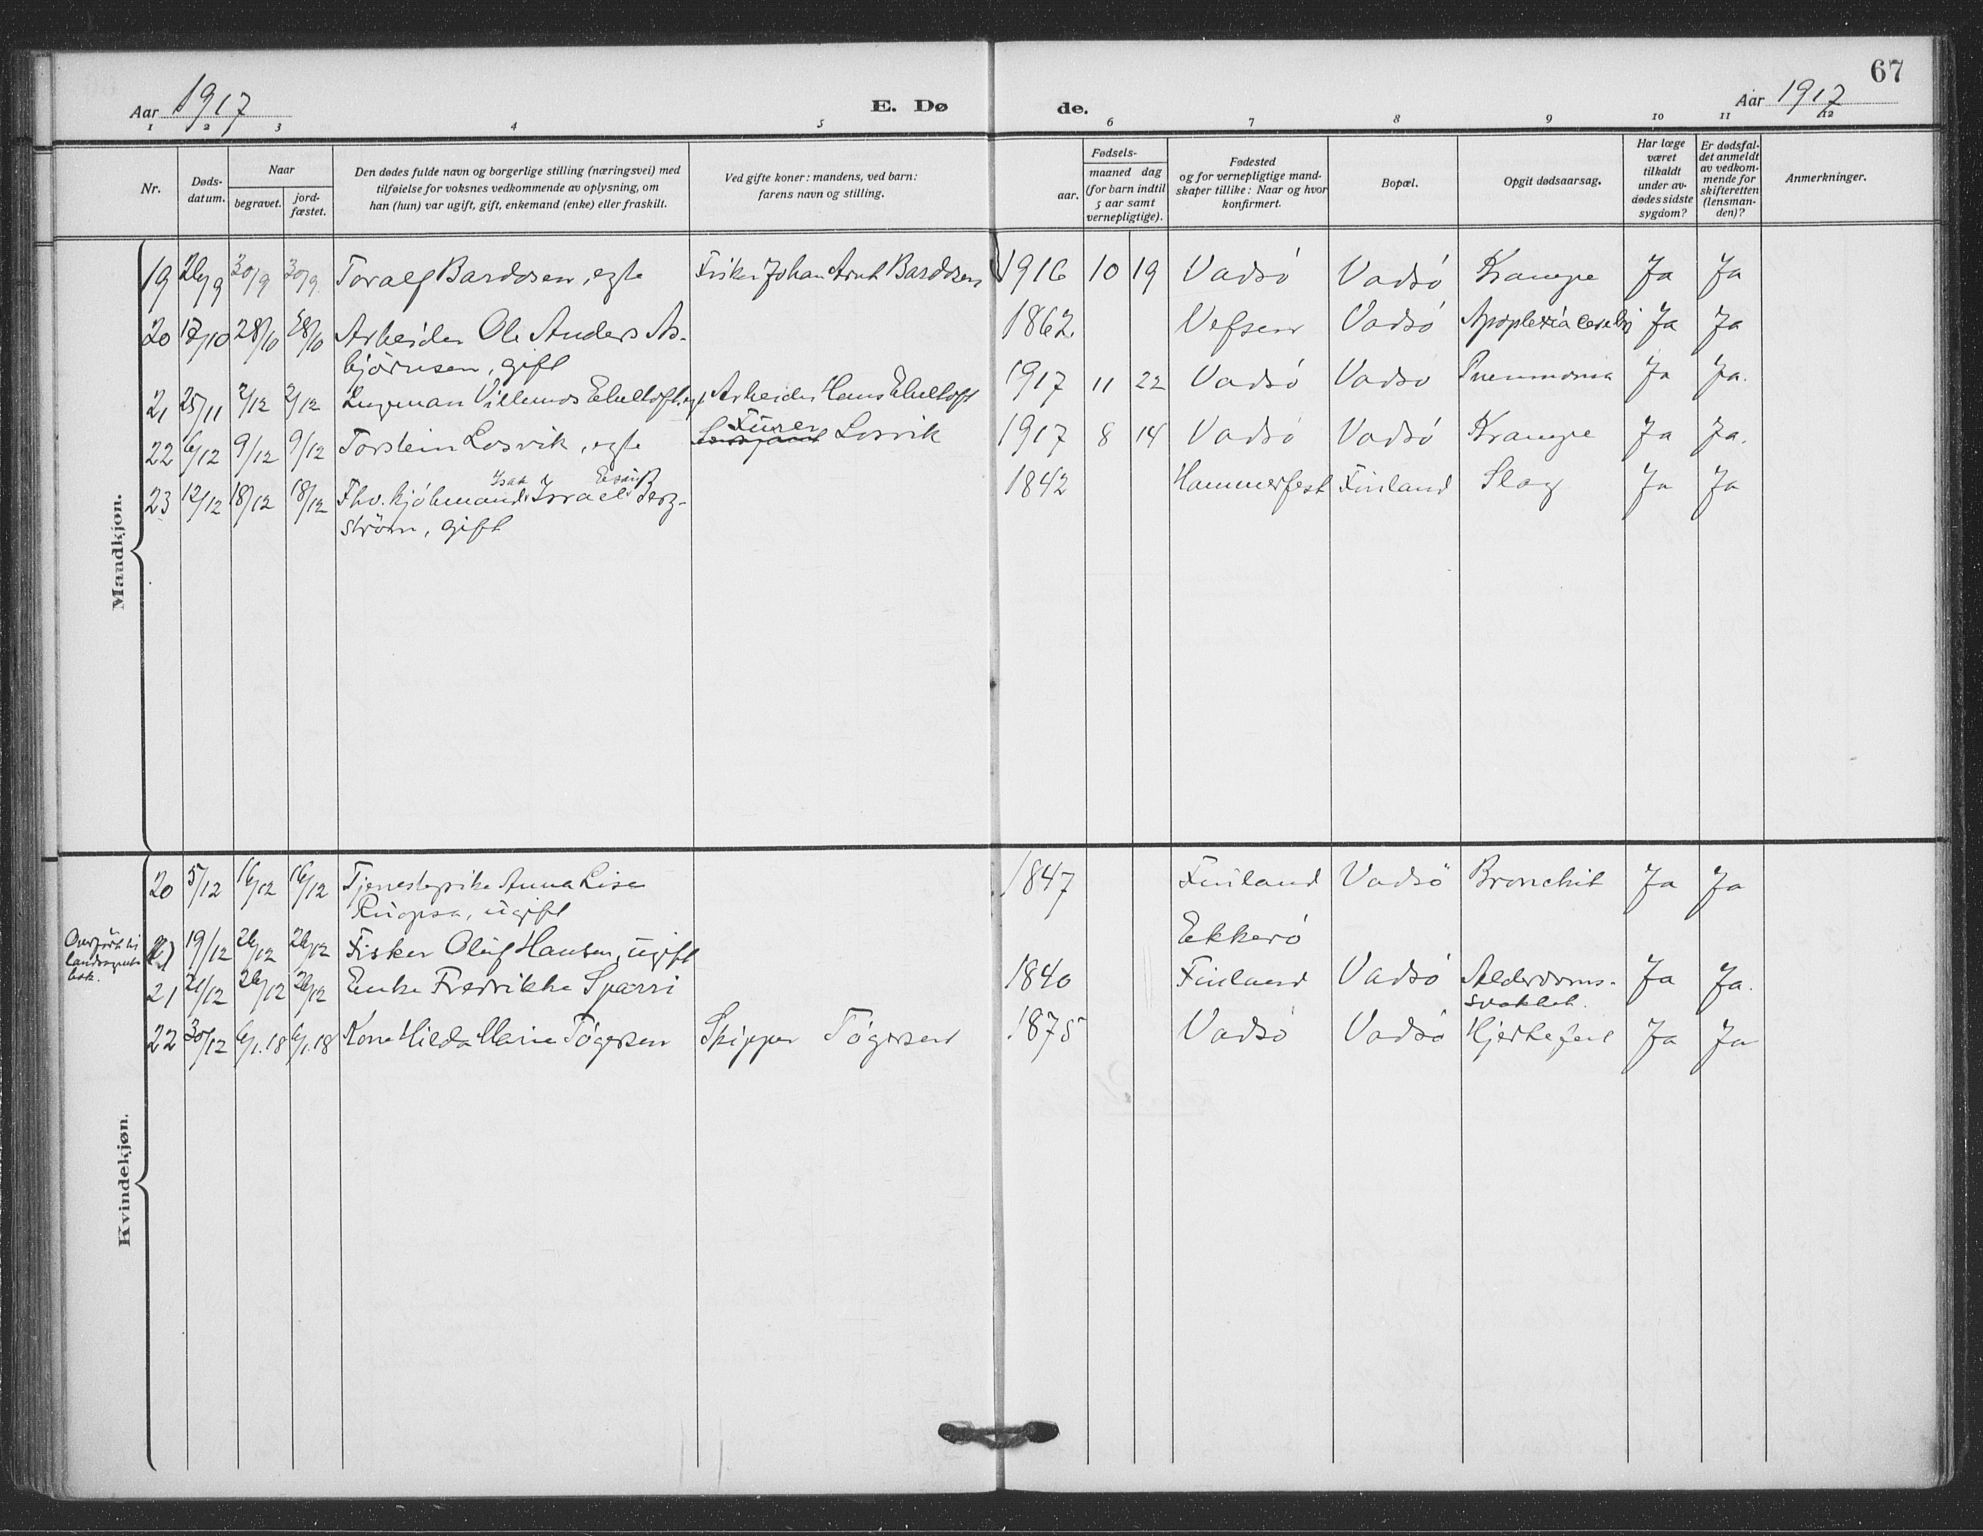 67
Aar 1917 E. Dø de. Aar 1917
1 2 3 4 5 6 7 8 9 10 11 12
Nr.
Døds-
datum.
Naar
begravet.
jord-
fæstet.
Den dødes fulde navn og borgerlige stilling (næringsvei) med
tilføielse for voksnes vedkommende av oplysning, om
han (hun) var ugift, gift, enkemand (enke) eller fraskilt.
Ved gifte koner: mandens, ved barn:
farens navn og stilling.
Fødsels-
aar.
maaned dag
(for barn indtil
5 aar samt
vernepligtige).
Fødested
og for vernepligtige mand-
skaper tillike: Naar og hvor
konfirmert.
Bopæl.
Opgit dødsaarsag.
Har læge
været
tilkaldt
under av-
dødes sidste
sygdom?
Er dødsfal-
det anmeldt
av vedkom-
mende for
skifteretten
(lensman-
den)?
Anmerkninger.
Mandkjøn.
19 26/9 30/9 30/9 Toralf Bardosen, egte Fisker Johan Arnt Bardosen 1916 10 19 Vadsö Vadsö Krampe Ja Ja
20 17/10 28/10 28/10 Arbeider Ole Anders As- 1862 Vefsen Vadsö Apoplexia cerebri Ja Ja
björnsen, gift
21 25/11 2/12 2/12 Villemos Ebeltoft, egt. Arbeider Hans Ebeltoft 1917 11 22 Vadsö Vadsö Pneumonia Ja Ja.
Furer
22 6/12 9/12 9/12 Torstein Losvik, egte Losvik 1917 8 14 Vadsö Vadsö Krampe Ja Ja.
Isak
23 12/12 18/12 18/12 Fhv. kjöbmand Israel Berg- 1842 Hammerfest Finland Slag Ja Ja
ström, gift
Kvindekjøn.
20 5/12 16/12 16/12 Tjenestepike Anna Lise 1847 Finland Vadsö Bronchit Ja Ja
Ruopsa, ugift
Overfört til
landsognets
bok.
19/12 26/12 26/12 Fisker Oluf Hansen, ugift Ekkerö
21 21/12 26/12 26/12 Enke Fredrikke Sparri 1840 Finland Vadsö Alderdoms- Ja Ja.
svakhet.
22 30/12 6/1.18 6/1.18 Kone Hilda Marie Tögersen Skipper Tögersen 1875 Vadsö Vadsö Hjertefeil Ja Ja